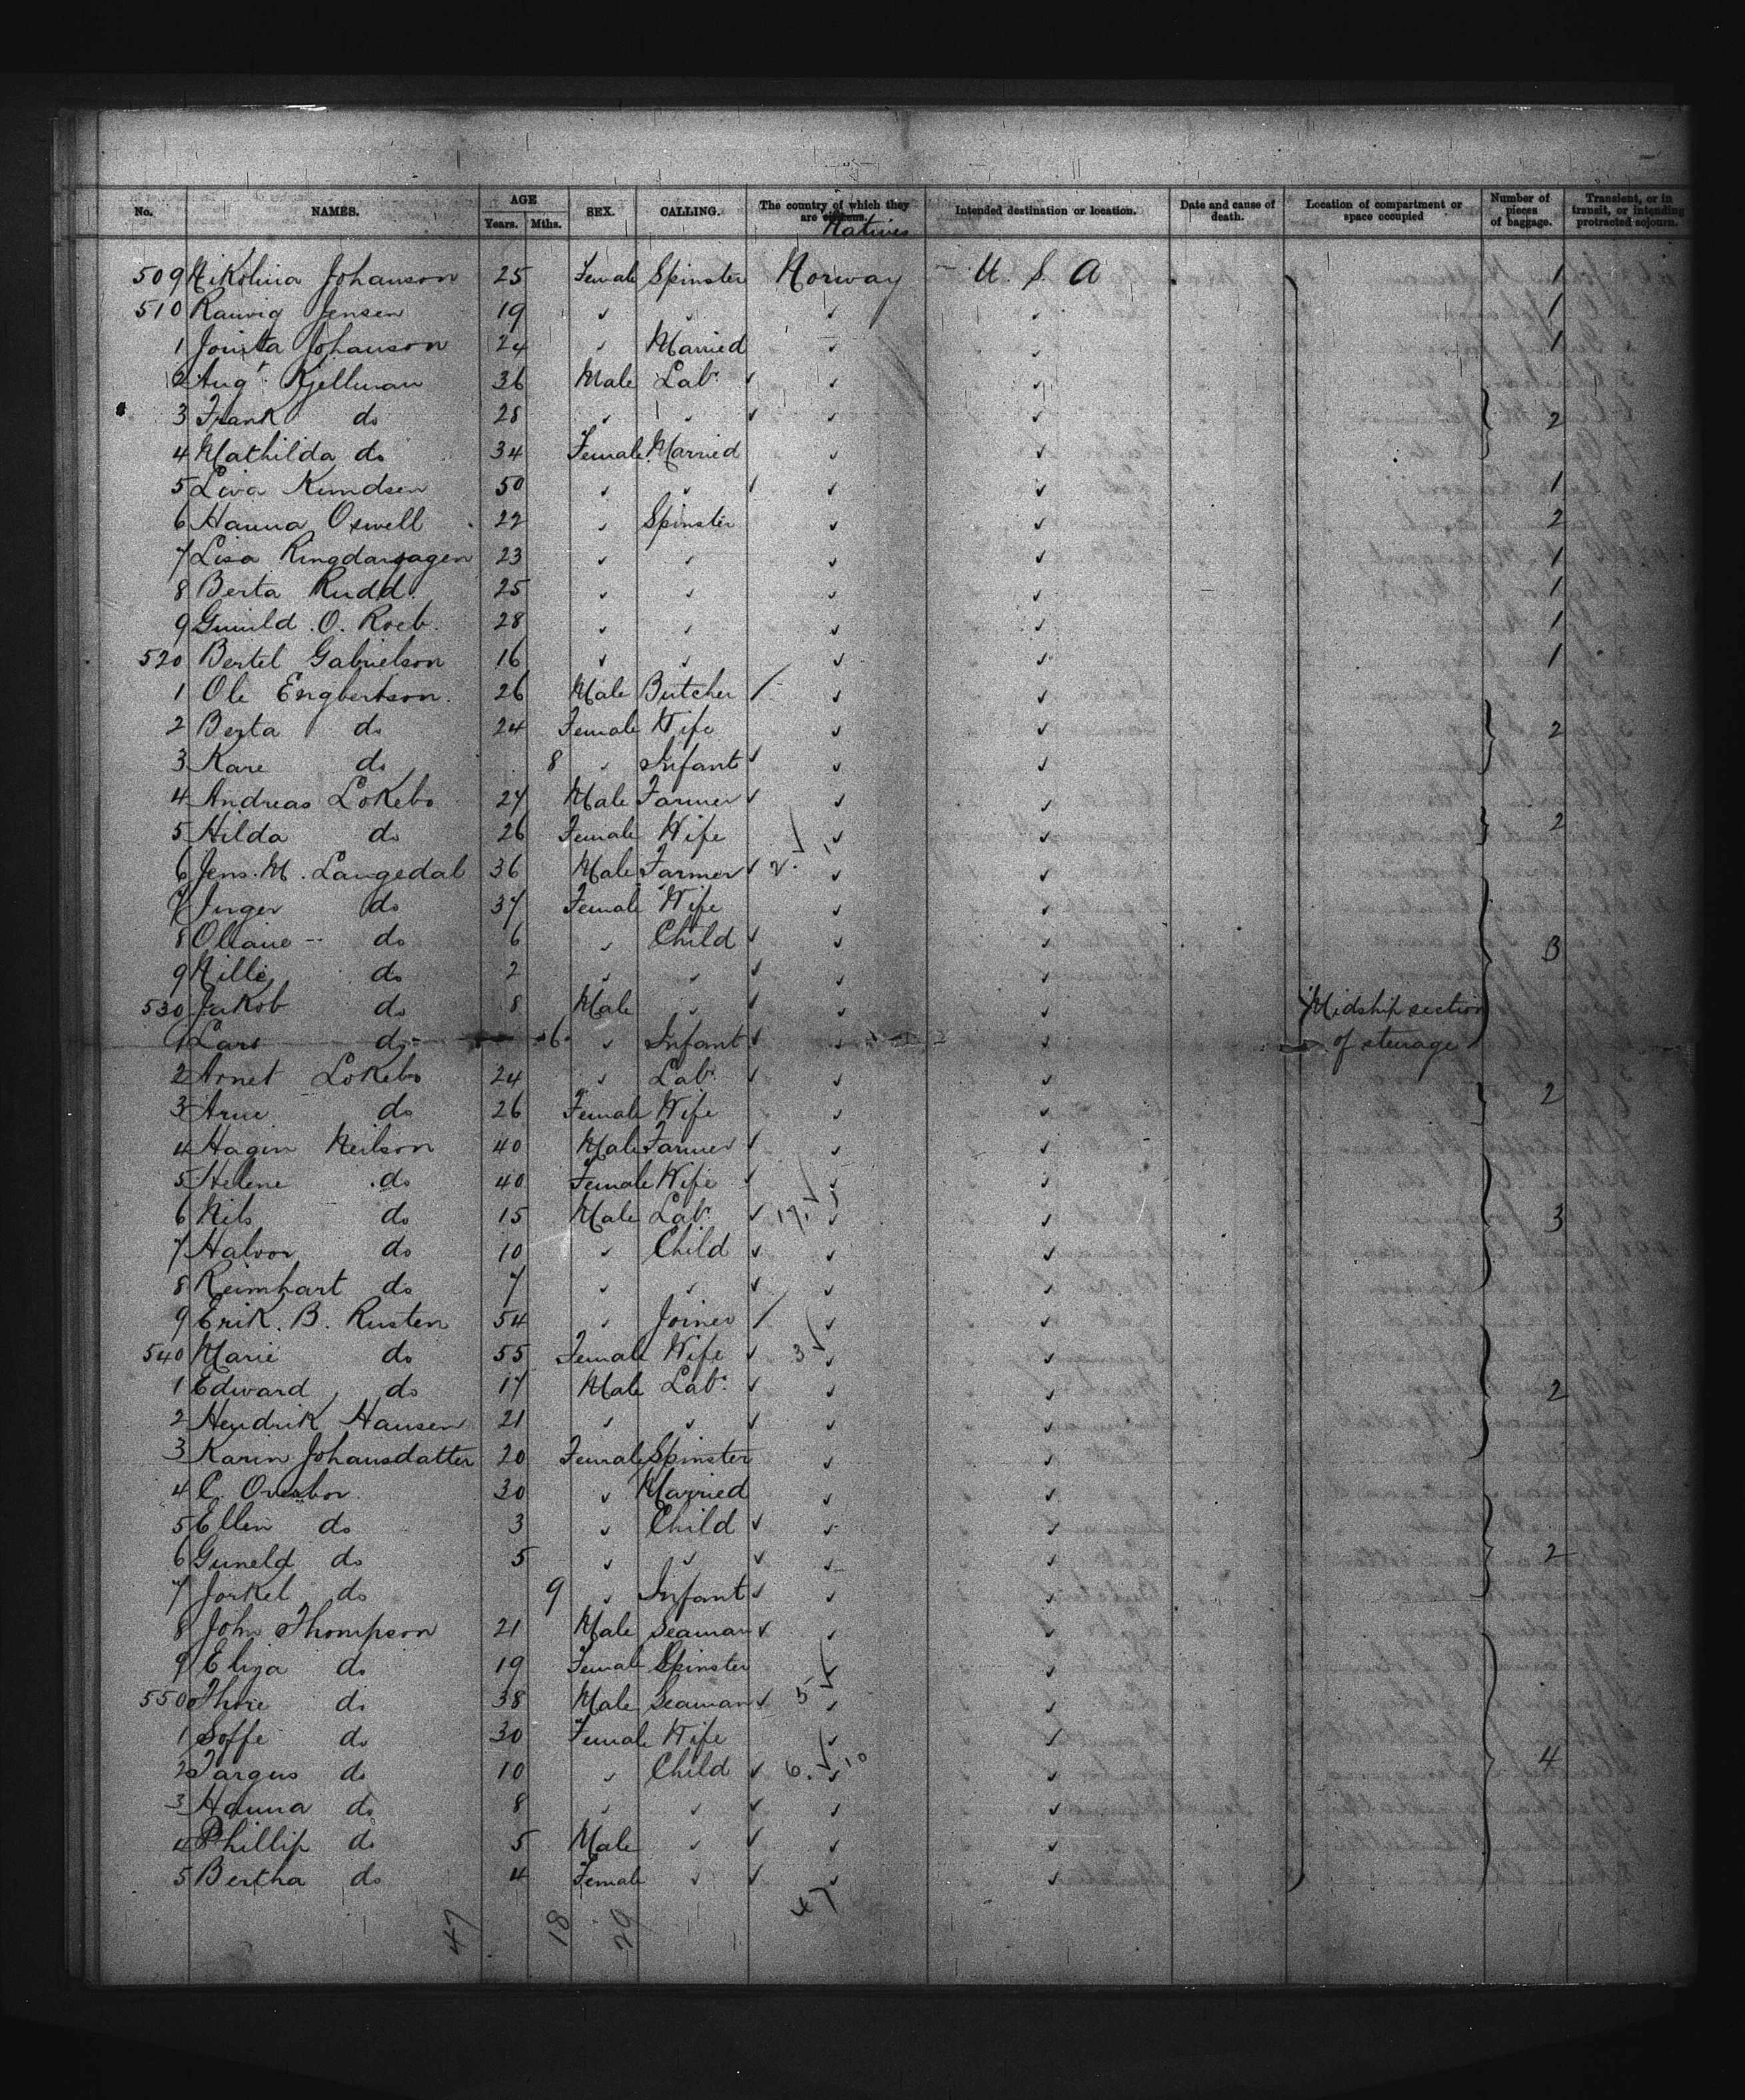 No. NAMES. AGE Years. Mths. SEX. CALLING. The country of which they are citizens. Natives Intended destination or location. Date and cause of death. Location of compartment or space occupied Number of pieces of baggage. Transient, or in transit, or intending protracted sojourn.
509 Nikolina Johanson 25 Female Spinster Norway U. S. A 1
510 Jensen 19 " " " " 1
1 Johanson 24 " Married " " 1
2 Augt. Kjellman 36 Male Labr " "
3 Frank do 28 " " " " 2
4 Mathilda do 34 Female Married " "
5 Liva Knudsen 50 " " " " 1
6 Hanna Oswell 22 " Spinster " " 2
7 Lisa 23 " " " " 1
8 Berta Rudd 25 " " " " 1
9 Gunild O. Roeb. 28 " " " " 1
520 Bertel Gabrielson 16 " " " " 1
1 Ole Engbertson. 26 Male Butcher " "
2 Berta do 24 Female Wife " " 2
3 Kare do 8 " Infant " "
4 Andreas Lokebo 27 Male Farmer " "
5 Hilda do 26 Female Wife " " 2
6 Jens. M. Langedal 36 Male Farmer 2. " "
7 Inger do 37 Female Wife " "
8 do 6 " Child " " 3
9 Nille do 2 " " " "
530 Jakob do 8 Male " " " Midship section
1 Lars do 6 " Infant " " of steerage
2 Arnet Lokebo 24 " Labr " "
3 Arne do 26 Female Wife " " 2
4 Hagen Neilson 40 Male Farmer " "
5 Helene do 40 Female Wife " "
6 Nils do 15 Male Labr 17. " " 3
7 Halvor do 10 " Child " "
8 Reimhart do 7 " " " "
9 Erik. B. Rusten 54 " Joiner " "
540 Marie do 55 Female Wife 3 " "
1 Edward do 17 Male Labr " " 2
2 Hendrik Hansen 21 " " " "
3 Karin Johansdatter 20 Female Spinster " "
4 C. 30 " Married " "
5 Ellen do 3 " Child " "
6 Guneld do 5 " " " " 2
7 Jorkel do 9 " Infant " "
8 John Thompson 21 Male Seaman " "
9 Eliza do 19 Female Spinster " "
550 do 38 Male Seaman 5 " "
1 Soffe do 30 Female Wife " "
2 Targus do 10 " Child 6. 10 " " 4
3 Hanna do 8 " " " "
4 Phillip do 5 Male " " "
5 Bertha do 4 Female " " "
47 18 29 47